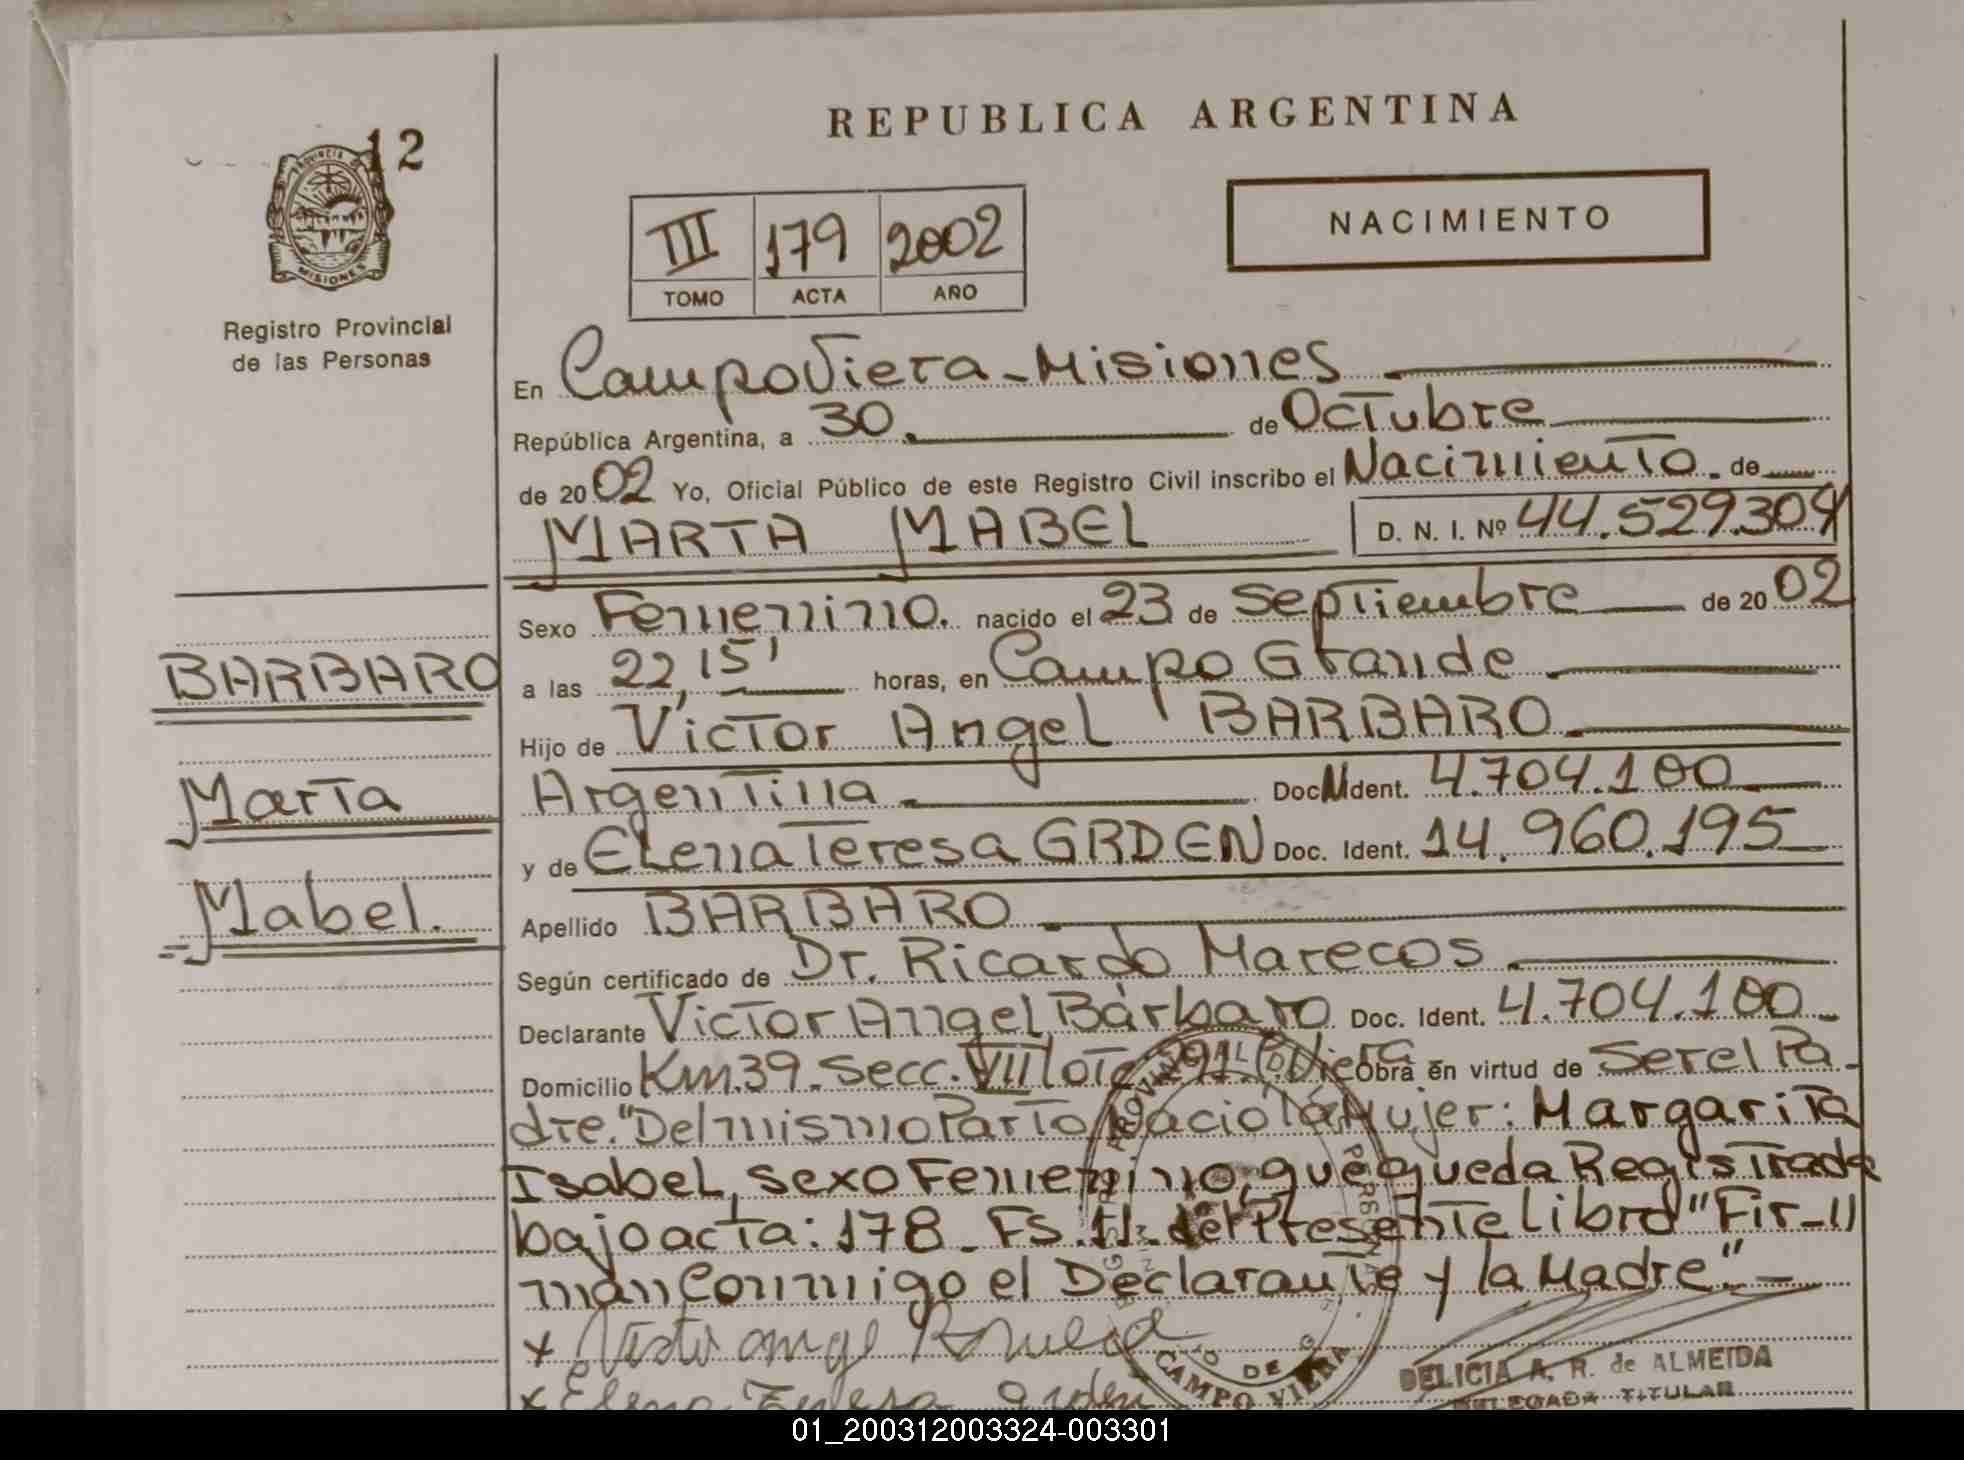 REPUBLICA ARGENTINA
12
PROVINCIA DE
MISIONES
Registro Provincial
de las Personas
NACIMIENTO
III 179 2002
TOMO ACTA AÑO
En Campo Viera - Misiones
República Argentina, a 30. de Octubre
de 2002 Yo, Oficial Público de este Registro Civil inscribo el Nacimiento. de
MARTA MABEL D. N. I. Nº 44.529.304
Sexo Femenino. nacido el 23 de Septiembre de 2002
a las 22,15' horas, en Campo Grande
Hijo de Victor Angel BARBARO
Argentina Doc. Ident. 4.704.100
y de Elena Teresa GRDEN Doc. Ident. 14.960.195
Apellido BARBARO
Según certificado de Dr. Ricardo Marecos
Declarante Victor Angel Bárbaro Doc. Ident. 4.704.100
Domicilio Km.39. Secc. VIII lote 291. C. Viera Obra en virtud de Ser el Pa-
dre. "Del mismo Parto Nacio la Mujer: Margarita
Isabel, sexo Femenino, que queda Registrada
bajo acta: 178 - Fs. 11. del Presente Libro "Fir-
man Conmigo el Declarante y la Madre" -
BARBARO
Marta
Mabel.
x Victor angel
x Elena Teresa grden
CAMPO VIERA
DELICIA A. R. de ALMEIDA
DELEGADA TITULAR
01_200312003324-003301